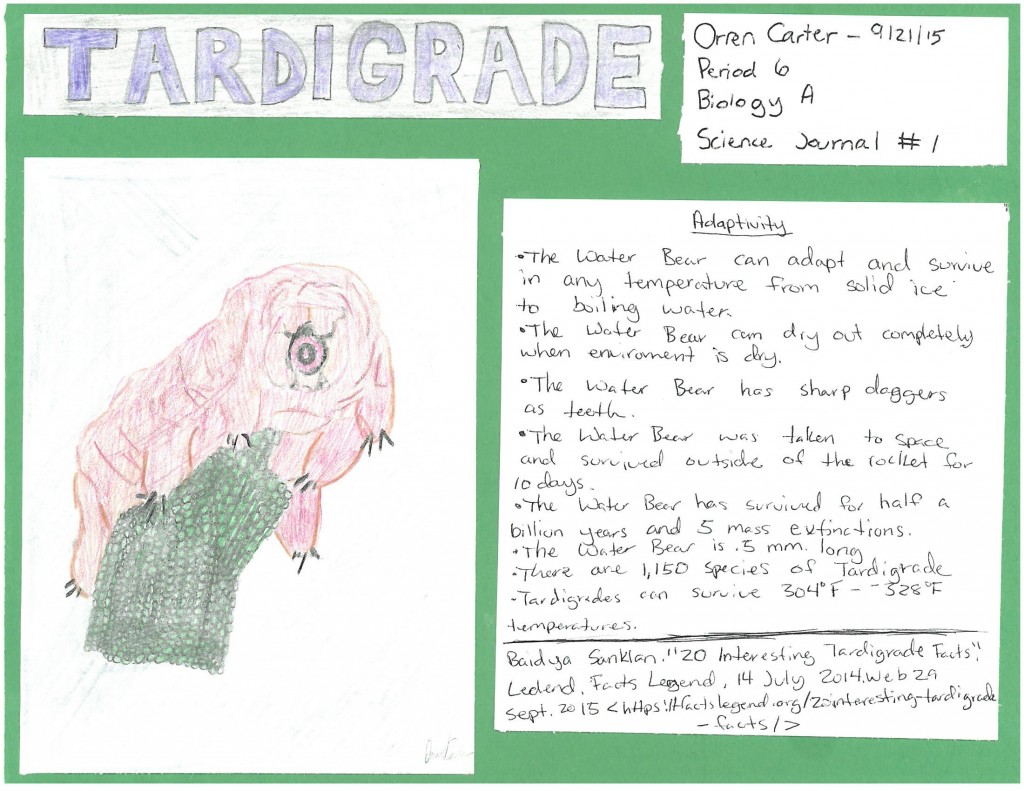 TARDIGRADE
Orren Carter - 9/21/15
Period 6
Biology A
Science Journal #1
Adaptivity
•The Water Bear can adapt and survive
in any temperature from solid ice
to boiling water.
•The Water Bear can dry out completely
when enviroment is dry.
•The Water Bear has sharp daggers
as teeth.
•The Water Bear was taken to space
and survived outside of the rocket for
10 days.
•The Water Bear has survived for half a
billion years and 5 mass extinctions.
•The Water Bear is .5 mm. long
•There are 1,150 species of Tardigrade
•Tardigrades can survive 304°F - -328°F
temperatures.
Baidya Sankalan. "20 Interesting Tardigrade Facts".
Ledend, Facts Legend, 14 July 2014. Web 29
Sept. 2015 <https://factslegend.org/20interesting-tardigrade
-facts/>